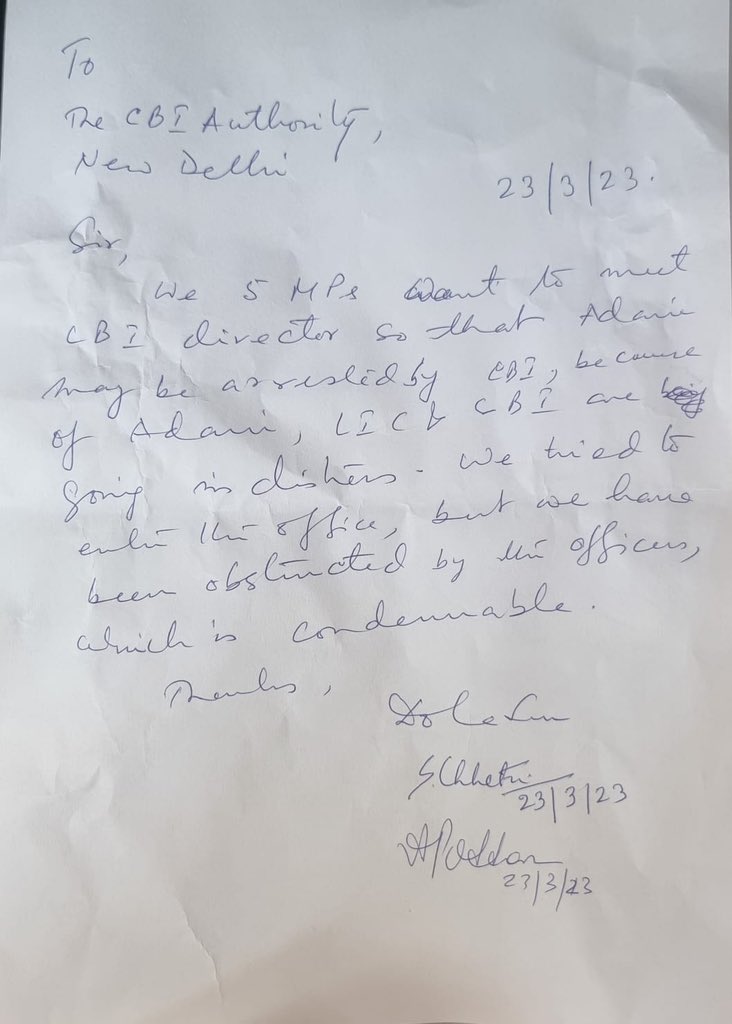 To
The CBI Authority,
New Delhi
23/3/23.
Sir,
We 5 MPs want to meet
CBI director so that Adani
may be arrested by CBI, because
of Adani, LIC & CBI are
going in distress. We tried to
enter the office, but we have
been obstructed by the officers,
which is condemnable.
Thanks,
Dola Sen
S. Chhetri
23/3/23
23/3/23